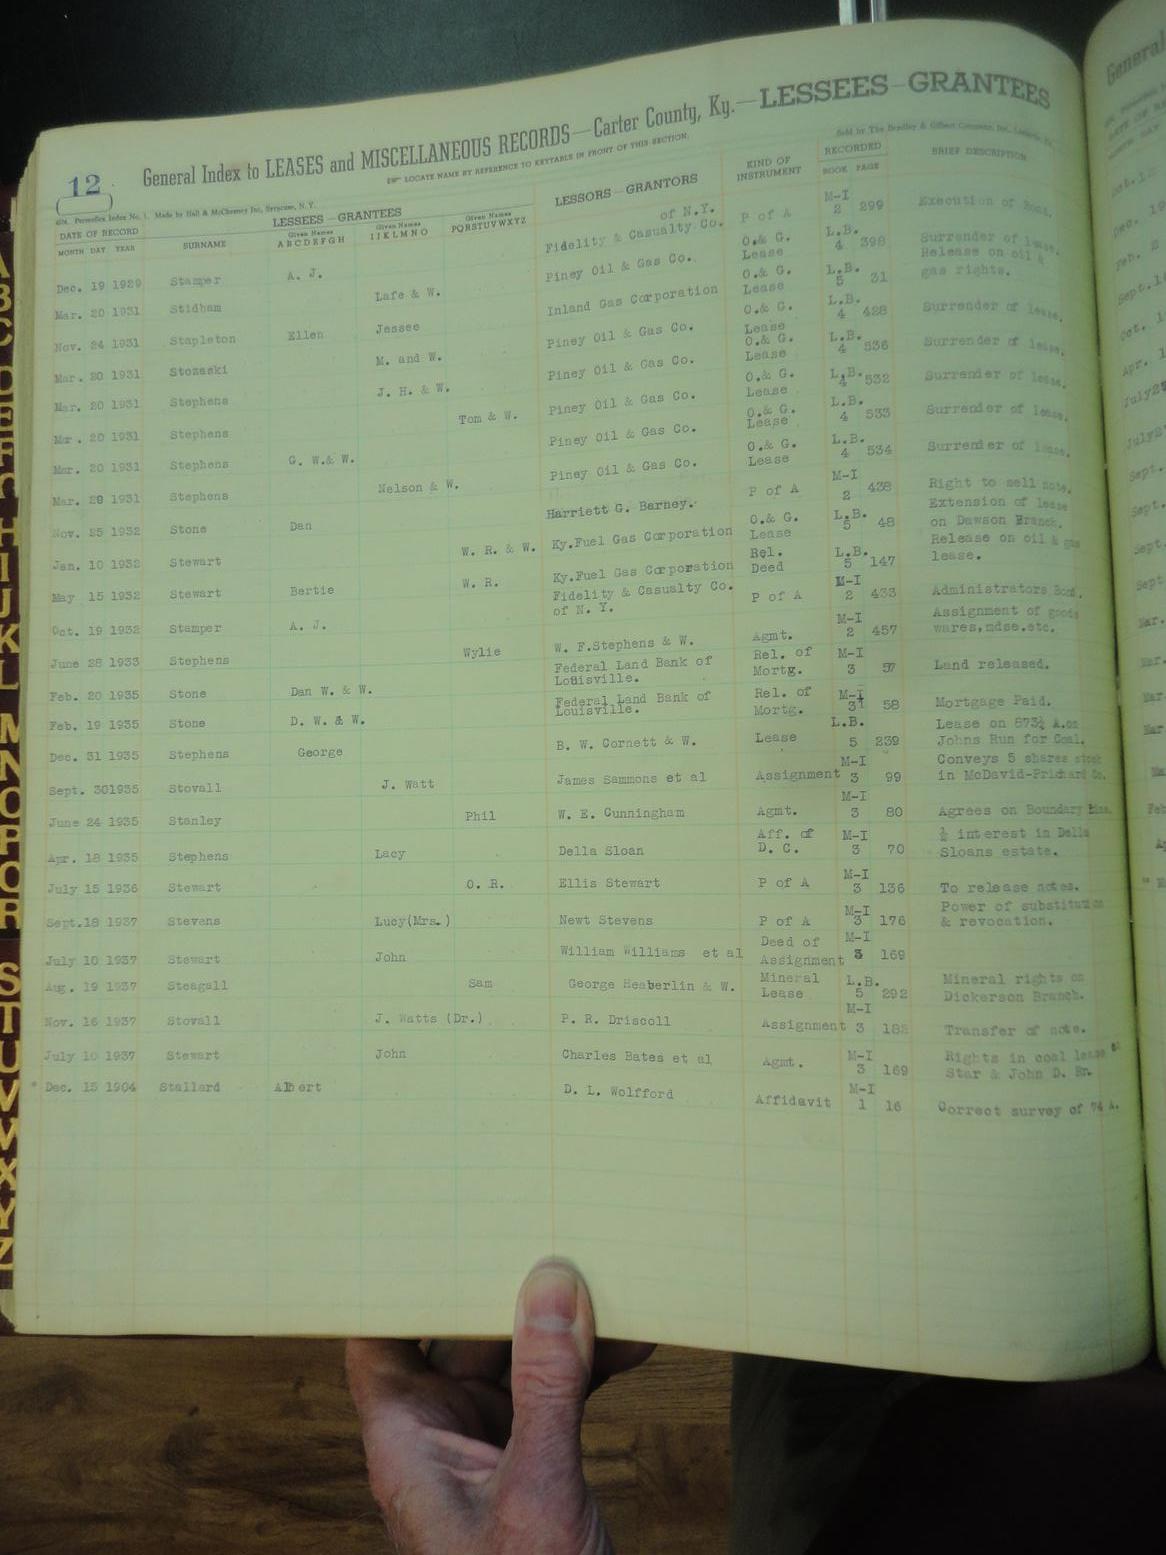 General Index to LEASES and MISCELLANEOUS RECORDS—Carter County, Ky.—LESSEES—GRANTEES
LOCATE NAME BY REFERENCE TO KEYTABLE IN FRONT OF THIS SECTION.
Sold by The Bradley & Gilbert Company, Inc.,
12
Made by Hall & McChesney Inc, Syracuse, N.Y.
DATE OF RECORD LESSEES—GRANTEES LESSORS—GRANTORS KIND OF INSTRUMENT RECORDED BRIEF DESCRIPTION
MONTH DAY YEAR SURNAME Given Names ABCDEFGH Given Names IJKLMNO Given Names PQRSTUVWXYZ BOOK PAGE
Dec. 19 1929 Stamper A. J. Fidelity & Casualty Co. of N.Y. P of A M-I 2 299 Execution of Bond.
Mar. 20 1931 Stidham Lafe & W. Piney Oil & Gas Co. O.& G. Lease L.B. 4 398 Surrender of lease.
Nov. 24 1931 Stapleton Ellen Jessee Inland Gas Corporation O.& G. Lease L.B. 5 31 Release on oil & gas rights.
Mar. 20 1931 Stozaski M. and W. Piney Oil & Gas Co. O.& G. Lease L.B. 4 428 Surrender of lease.
Mar. 20 1931 Stephens J. H. & W. Piney Oil & Gas Co. O.& G. Lease L.B. 4 536 Surrender of lease.
Mar. 20 1931 Stephens Tom & W. Piney Oil & Gas Co. O.& G. Lease L.B. 4 532 Surrender of lease.
Mar. 20 1931 Stephens G. W.& W. Piney Oil & Gas Co. O.& G. Lease L.B. 4 533 Surrender of lease.
Mar. 20 1931 Stephens Nelson & W. Piney Oil & Gas Co. O.& G. Lease L.B. 4 534 Surrender of lease.
Nov. 25 1932 Stone Dan Harriett G. Barney. P of A M-I 2 438 Right to sell note.
Jan. 10 1932 Stewart W. R. & W. Ky.Fuel Gas Corporation O.& G. Lease L.B. 5 48 Extension of lease on Dawson Branch.
May 15 1932 Stewart Bertie W. R. Ky.Fuel Gas Corporation Rel. Deed L.B. 5 147 Release on oil & gas lease.
Oct. 19 1932 Stamper A. J. Fidelity & Casualty Co. of N. Y. P of A M-I 2 433 Administrators Bond.
June 28 1933 Stephens Wylie W. F.Stephens & W. Agmt. M-I 2 457 Assignment of goods wares,mdse.etc.
Feb. 20 1935 Stone Dan W. & W. Federal Land Bank of Louisville. Rel. of Mortg. M-I 3 57 Land released.
Feb. 19 1935 Stone D. W. & W. Federal Land Bank of Louisville. Rel. of Mortg. M-I 3 58 Mortgage Paid.
Dec. 31 1935 Stephens George B. W. Cornett & W. Lease L.B. 5 239 Lease on 873½ A.on Johns Run for Coal.
Sept. 301935 Stovall J. Watt James Sammons et al Assignment M-I 3 99 Conveys 5 shares stock in McDavid-Prichard Co.
June 24 1935 Stanley Phil W. E. Cunningham Agmt. M-I 3 80 Agrees on Boundary line.
Apr. 18 1935 Stephens Lacy Della Sloan Aff. of D. C. M-I 3 70 ½ interest in Della Sloans estate.
July 15 1936 Stewart O. R. Ellis Stewart P of A M-I 3 136 To release notes.
Sept.18 1937 Stevens Lucy(Mrs.) Newt Stevens P of A M-I 3 176 Power of substitution & revocation.
July 10 1937 Stewart John William Williams et al Deed of Assignment M-I 3 169
Aug. 19 1937 Steagall Sam George Heaberlin & W. Mineral Lease L.B. 5 292 Mineral rights on Dickerson Branch.
Nov. 16 1937 Stovall J. Watts (Dr.) P. R. Driscoll Assignment M-I 3 Transfer of note.
July 10 1937 Stewart John Charles Bates et al Agmt. M-I 3 169 Rights in coal lease Star & John D. Br.
* Dec. 15 1904 Stallard Albert D. L. Wolfford Affidavit M-I 1 16 Correct survey of 74 A.